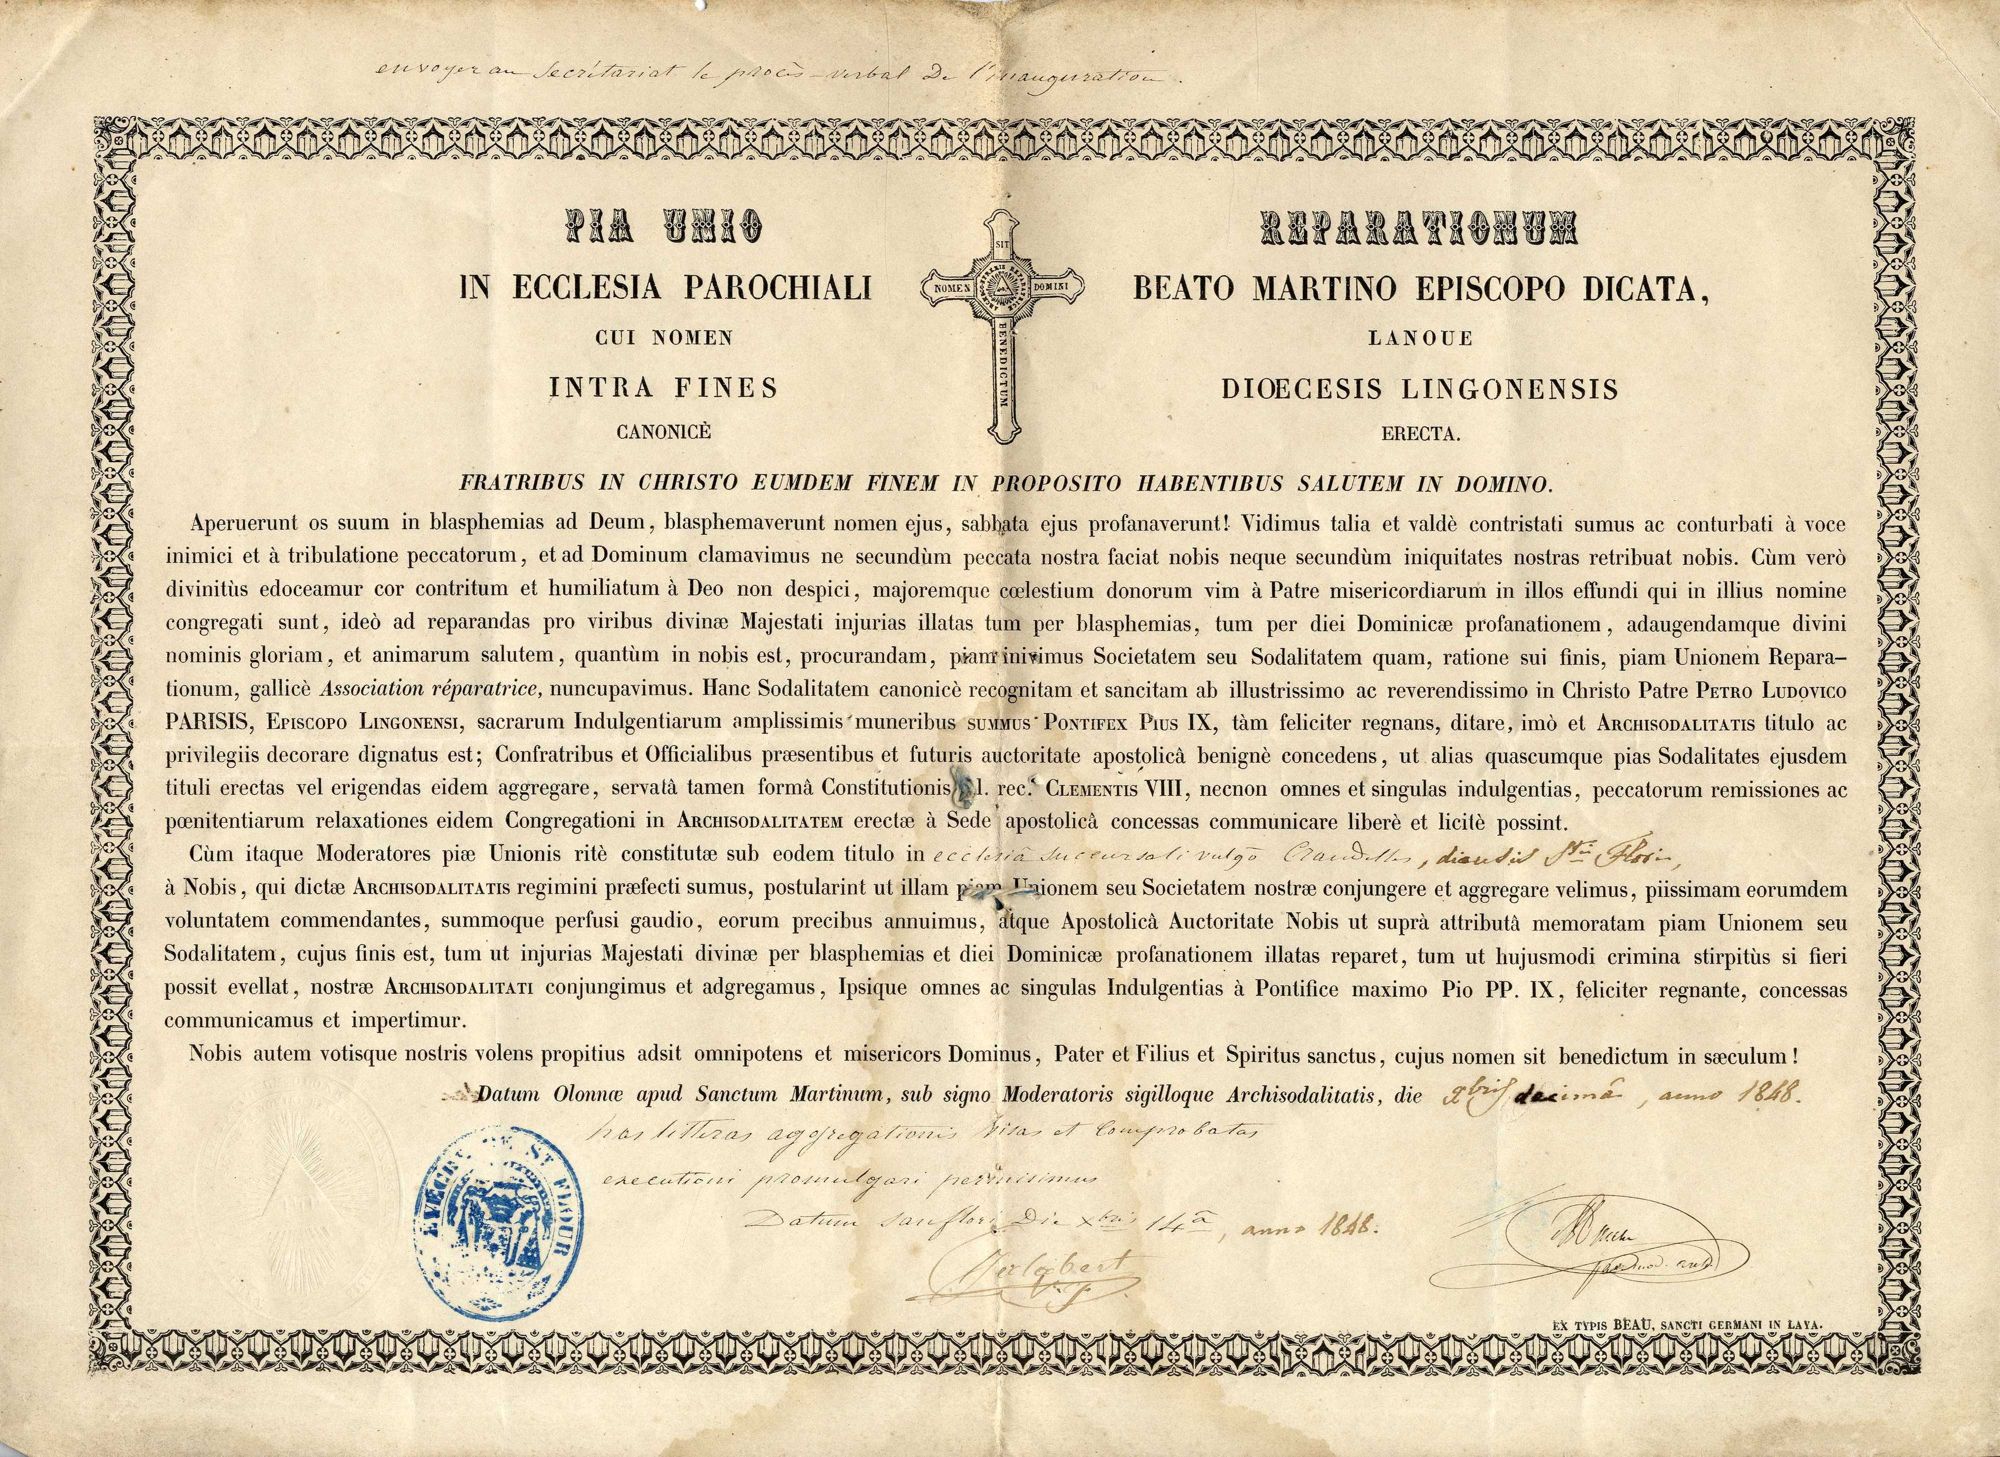 envoyer au Secrétariat le procès-verbal De l'inauguration.
PIA UNIO REPARATIONUM
IN ECCLESIA PAROCHIALI BEATO MARTINO EPISCOPO DICATA,
CUI NOMEN LANOUE
INTRA FINES DIŒCESIS LINGONENSIS
CANONICÈ ERECTA.
SIT
NOMEN DOMINI
BENEDICTUM
FRATRIBUS IN CHRISTO EUMDEM FINEM IN PROPOSITO HABENTIBUS SALUTEM IN DOMINO.
Aperuerunt os suum in blasphemias ad Deum, blasphemaverunt nomen ejus, sabbata ejus profanaverunt! Vidimus talia et valdè contristati sumus ac conturbati à voce
inimici et à tribulatione peccatorum, et ad Dominum clamavimus ne secundùm peccata nostra faciat nobis neque secundùm iniquitates nostras retribuat nobis. Cùm verò
divinitùs edoceamur cor contritum et humiliatum à Deo non despici, majoremque cœlestium donorum vim à Patre misericordiarum in illos effundi qui in illius nomine
congregati sunt, ideò ad reparandas pro viribus divinæ Majestati injurias illatas tum per blasphemias, tum per diei Dominicæ profanationem, adaugendamque divini
nominis gloriam, et animarum salutem, quantùm in nobis est, procurandam, piam inivimus Societatem seu Sodalitatem quam, ratione sui finis, piam Unionem Repara-
tionum, gallicè Association réparatrice, nuncupavimus. Hanc Sodalitatem canonicè recognitam et sancitam ab illustrissimo ac reverendissimo in Christo Patre PETRO LUDOVICO
PARISIS, EPISCOPO LINGONENSI, sacrarum Indulgentiarum amplissimis muneribus SUMMUS PONTIFEX PIUS IX, tàm feliciter regnans, ditare, imò et ARCHISODALITATIS titulo ac
privilegiis decorare dignatus est; Confratribus et Officialibus præsentibus et futuris auctoritate apostolicâ benignè concedens, ut alias quascumque pias Sodalitates ejusdem
tituli erectas vel erigendas eidem aggregare, servatâ tamen formâ Constitutionis l. rec. CLEMENTIS VIII, necnon omnes et singulas indulgentias, peccatorum remissiones ac
pœnitentiarum relaxationes eidem Congregationi in ARCHISODALITATEM erectæ à Sede apostolicâ concessas communicare liberè et licitè possint.
Cùm itaque Moderatores piæ Unionis ritè constitutæ sub eodem titulo in ecclesiâ succursali vulgò Crandelles, diœcesis Sti Flori,
à Nobis, qui dictæ ARCHISODALITATIS regimini præfecti sumus, postularint ut illam piam Unionem seu Societatem nostræ conjungere et aggregare velimus, piissimam eorumdem
voluntatem commendantes, summoque perfusi gaudio, eorum precibus annuimus, atque Apostolicâ Auctoritate Nobis ut suprà attributâ memoratam piam Unionem seu
Sodalitatem, cujus finis est, tum ut injurias Majestati divinæ per blasphemias et diei Dominicæ profanationem illatas reparet, tum ut hujusmodi crimina stirpitùs si fieri
possit evellat, nostræ ARCHISODALITATI conjungimus et adgregamus, Ipsique omnes ac singulas Indulgentias à Pontifice maximo Pio PP. IX, feliciter regnante, concessas
communicamus et impertimur.
Nobis autem votisque nostris volens propitius adsit omnipotens et misericors Dominus, Pater et Filius et Spiritus sanctus, cujus nomen sit benedictum in sæculum!
Datum Olonnæ apud Sanctum Martinum, sub signo Moderatoris sigilloque Archisodalitatis, die Xbris decimâ, anno 1848.
has litteras aggregationis visas et comprobatas
executioni promulgari permisimus
Datum sanflori Die Xbris 14â, anno 1848.
EVÊCHÉ DE ST FLOUR
EX TYPIS BEAU, SANCTI GERMANI IN LAYA.